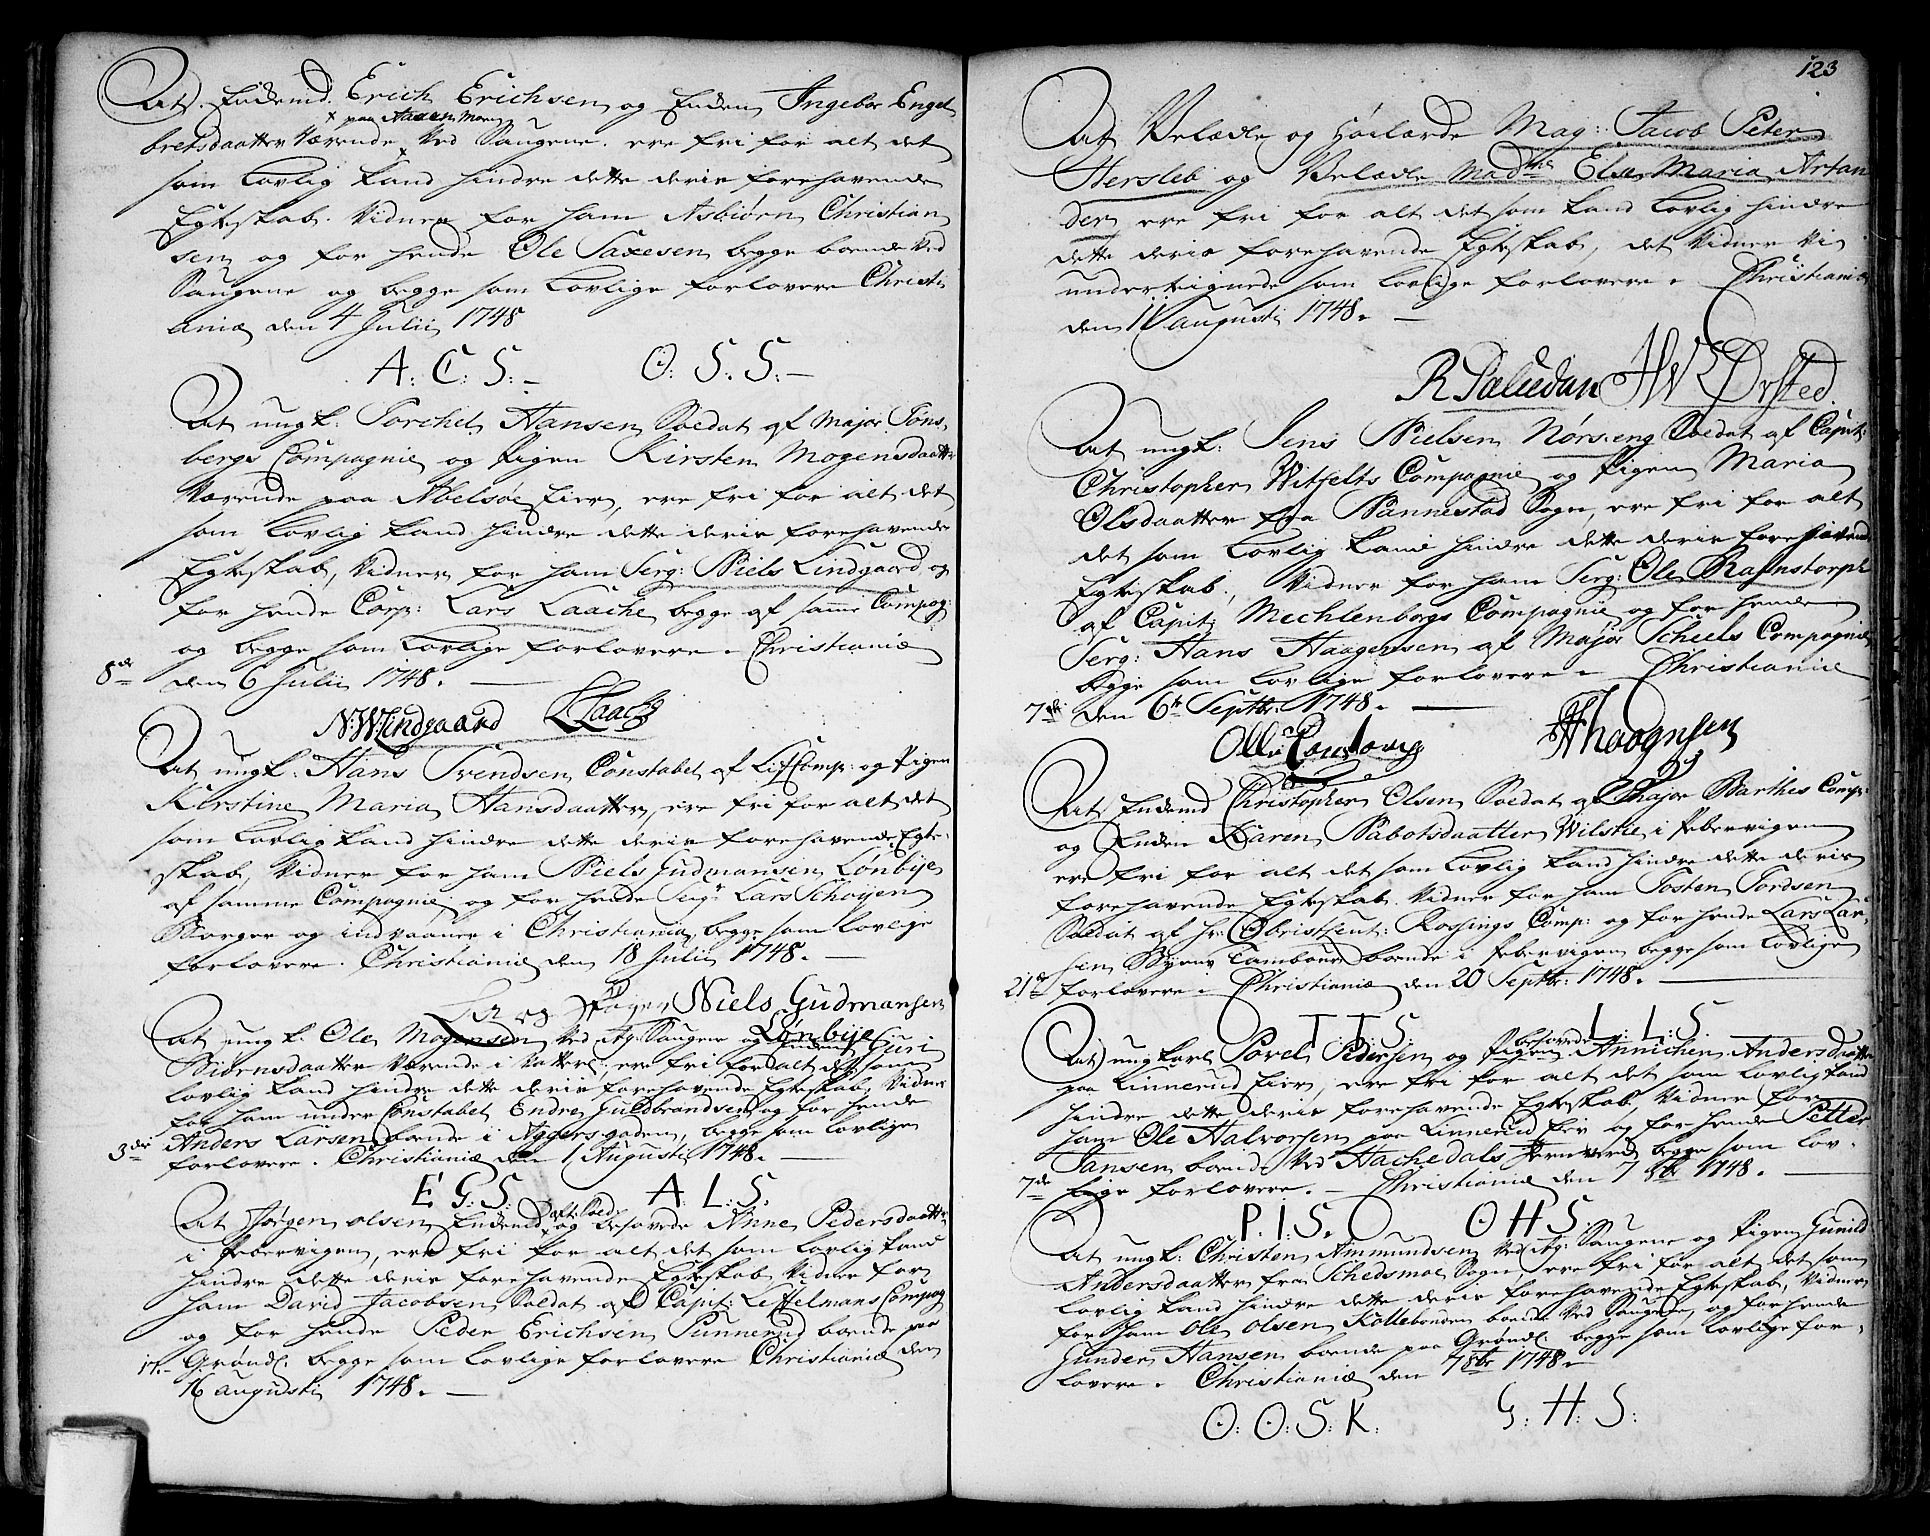 At Enkemd. Erich Erichsen og Enken Ingebor Engel
x paa Aaaen Moen
bretsdaatter Værende x Ved Saugene. ere fri for alt det
som Lovlig kand hindre dette derir forehavende
Egteskab. Vidner for ham Asbiørn Christian
sen og for hende Ole Saxesen begge boende Ved
Saugene og begge som Lovlige forlovere Christi
aniæ den 4 Julii 1748
A: C: S:- O: S. S:-
At ungk: Torchel Hansen Soldat af Major Tøns
bergs Compagnie og Pigen Kirsten Mogensdaatter
Værende paa Abelsøe Eier, ere fri for alt det
som Lovlig kand hindre dette derir forehavende
Egteskab, Vidner for ham Serg: Niels Lindgaard og
for hende Corp: Lars Laache begge af samme Compag:
og begge som Lovlige forlovere. Christianiæ
8de den 6 Julii 1748.
N:W:Lindgaard LLaache
At ungk: Hans Svendsen Constabel af LifComp: og Pigen
Kirstine Maria Hansdaatter, ere fri for alt det
som Lovlig kand hindre dette derir forehavende Egte-
skab, Vidner for ham Niels Gudmansen Lønbye
af samme Compagnie og for hende Serg: Lars Schøyen
Borger og indvaaner i Christiania, begge som Lovlige
forlovere. Christianiæ den 18 Julii 1748.
Niels Gudmansen
Lønbije
At ungk. Ole Mogensen Ved Ag: Saugene og Enken Guri
Biørnsdaatter Værende i Vatterl: ere fri for alt det som
Lovlig kand hindre dette derir forehavende Egteskab, Vidner
for ham under Constabel Endre Guldbrandsen og for hende
3die Anders Larsen boende i Aggersgaden, begge som Lovlige
forlovere. Christianiæ den 1 Augusti 1748.
E G: S: A: L: S.
At Jørgen Olsen Enkemd Afts: Sold: og besovede Anne Pedersdaatter
i Pebervigen, ere fri for alt det som Lovlig kand
hindre dette derir forehavende Egteskab Vidner for
ham David Jacobsen Soldat af Capit: Leffelmans Compag
og for hende Peder Erichsen Punnerud boende paa
17. Grønl: begge som Lovlige forlovere Christianiæ den
16 augusti 1748.
123
At Velædle og Høilærde Mag: Jacob Peter
Hersleb og Velædle Madme Else Maria Artan
den ere fri for alt det som kand Lovlig hindre
dette derir forehavende Egteskab, det Vidner Vi
undertegnede som Lovlige forlovere. Christianiæ
den 11 augusti 1748.
R Paludan HW Ørsted.
At ungk: Jens Nielsen Nørseng Soldat af Capit:
Christopher Witfelts Compagnie og Pigen Maria
Olsdaatter fra Nannestad Sogn, ere fri for alt
det som Lovlig kand hindre dette derir forehavende
Egteskab, Vidner for ham Serg: Ole Rafnstorph
af Capit: Mechlenborgs Compagnie og for hende
Serg: Hans Haagensen af Major Scheels Compagnie
begge som Lovlige forlovere. Christianiæ
7de den 6te Septbr: 1748.
HHaagnsen
At Enkemd Christopher Olsen Soldat af Major Barthes Comp:
og Enken Karen Nabotsdaatter Wilske i Pebervigen
ere fri for alt det som Lovlig kand hindre dette derir
forehavende Egteskab. Vidner for ham Tosten Tordsen
Soldat af Hr: Obristleut: Rossings Comp: og for hende Lars Lar
sen Byens Tambour boende i Pebervigen begge som Lovlige
21de forlovere. Christianiæ den 20 Septbr: 1748.
T: T: S. L: L: S.
At ungkarl Povel Pedersen og besovede Pigen Annichen Andersdaatter
paa Linnerud Eier, ere fri for alt det som Lovlig kand
hindre dette derir forehavende Egteskab, Vidner for
ham Ole Halvorsen paa Linnerud Eier og for hende Petter
Jansen boende Ved Hachedals Jernverck begge som Lov-
7de lige forlovere. Christianiæ den 7 8br 1748.
P. I. S. O H S.
At ungk: Christen Ammundsen Ved Ag: Saugene og Pigen Gunild
Andersdaatter fra Schedsmoe Sogn, ere fri for alt det som
Lovlig kand hindre dette derir forehavende Egteskab, Vidner
for ham Ole Olsen Kollebonden boende Ved Saugene, og for hende
Gunder Hansen boende paa Grønl: begge som Lovlige for-
lovere. Christianiæ den 7 8br 1748.
O: O: S. K. G: H: S: